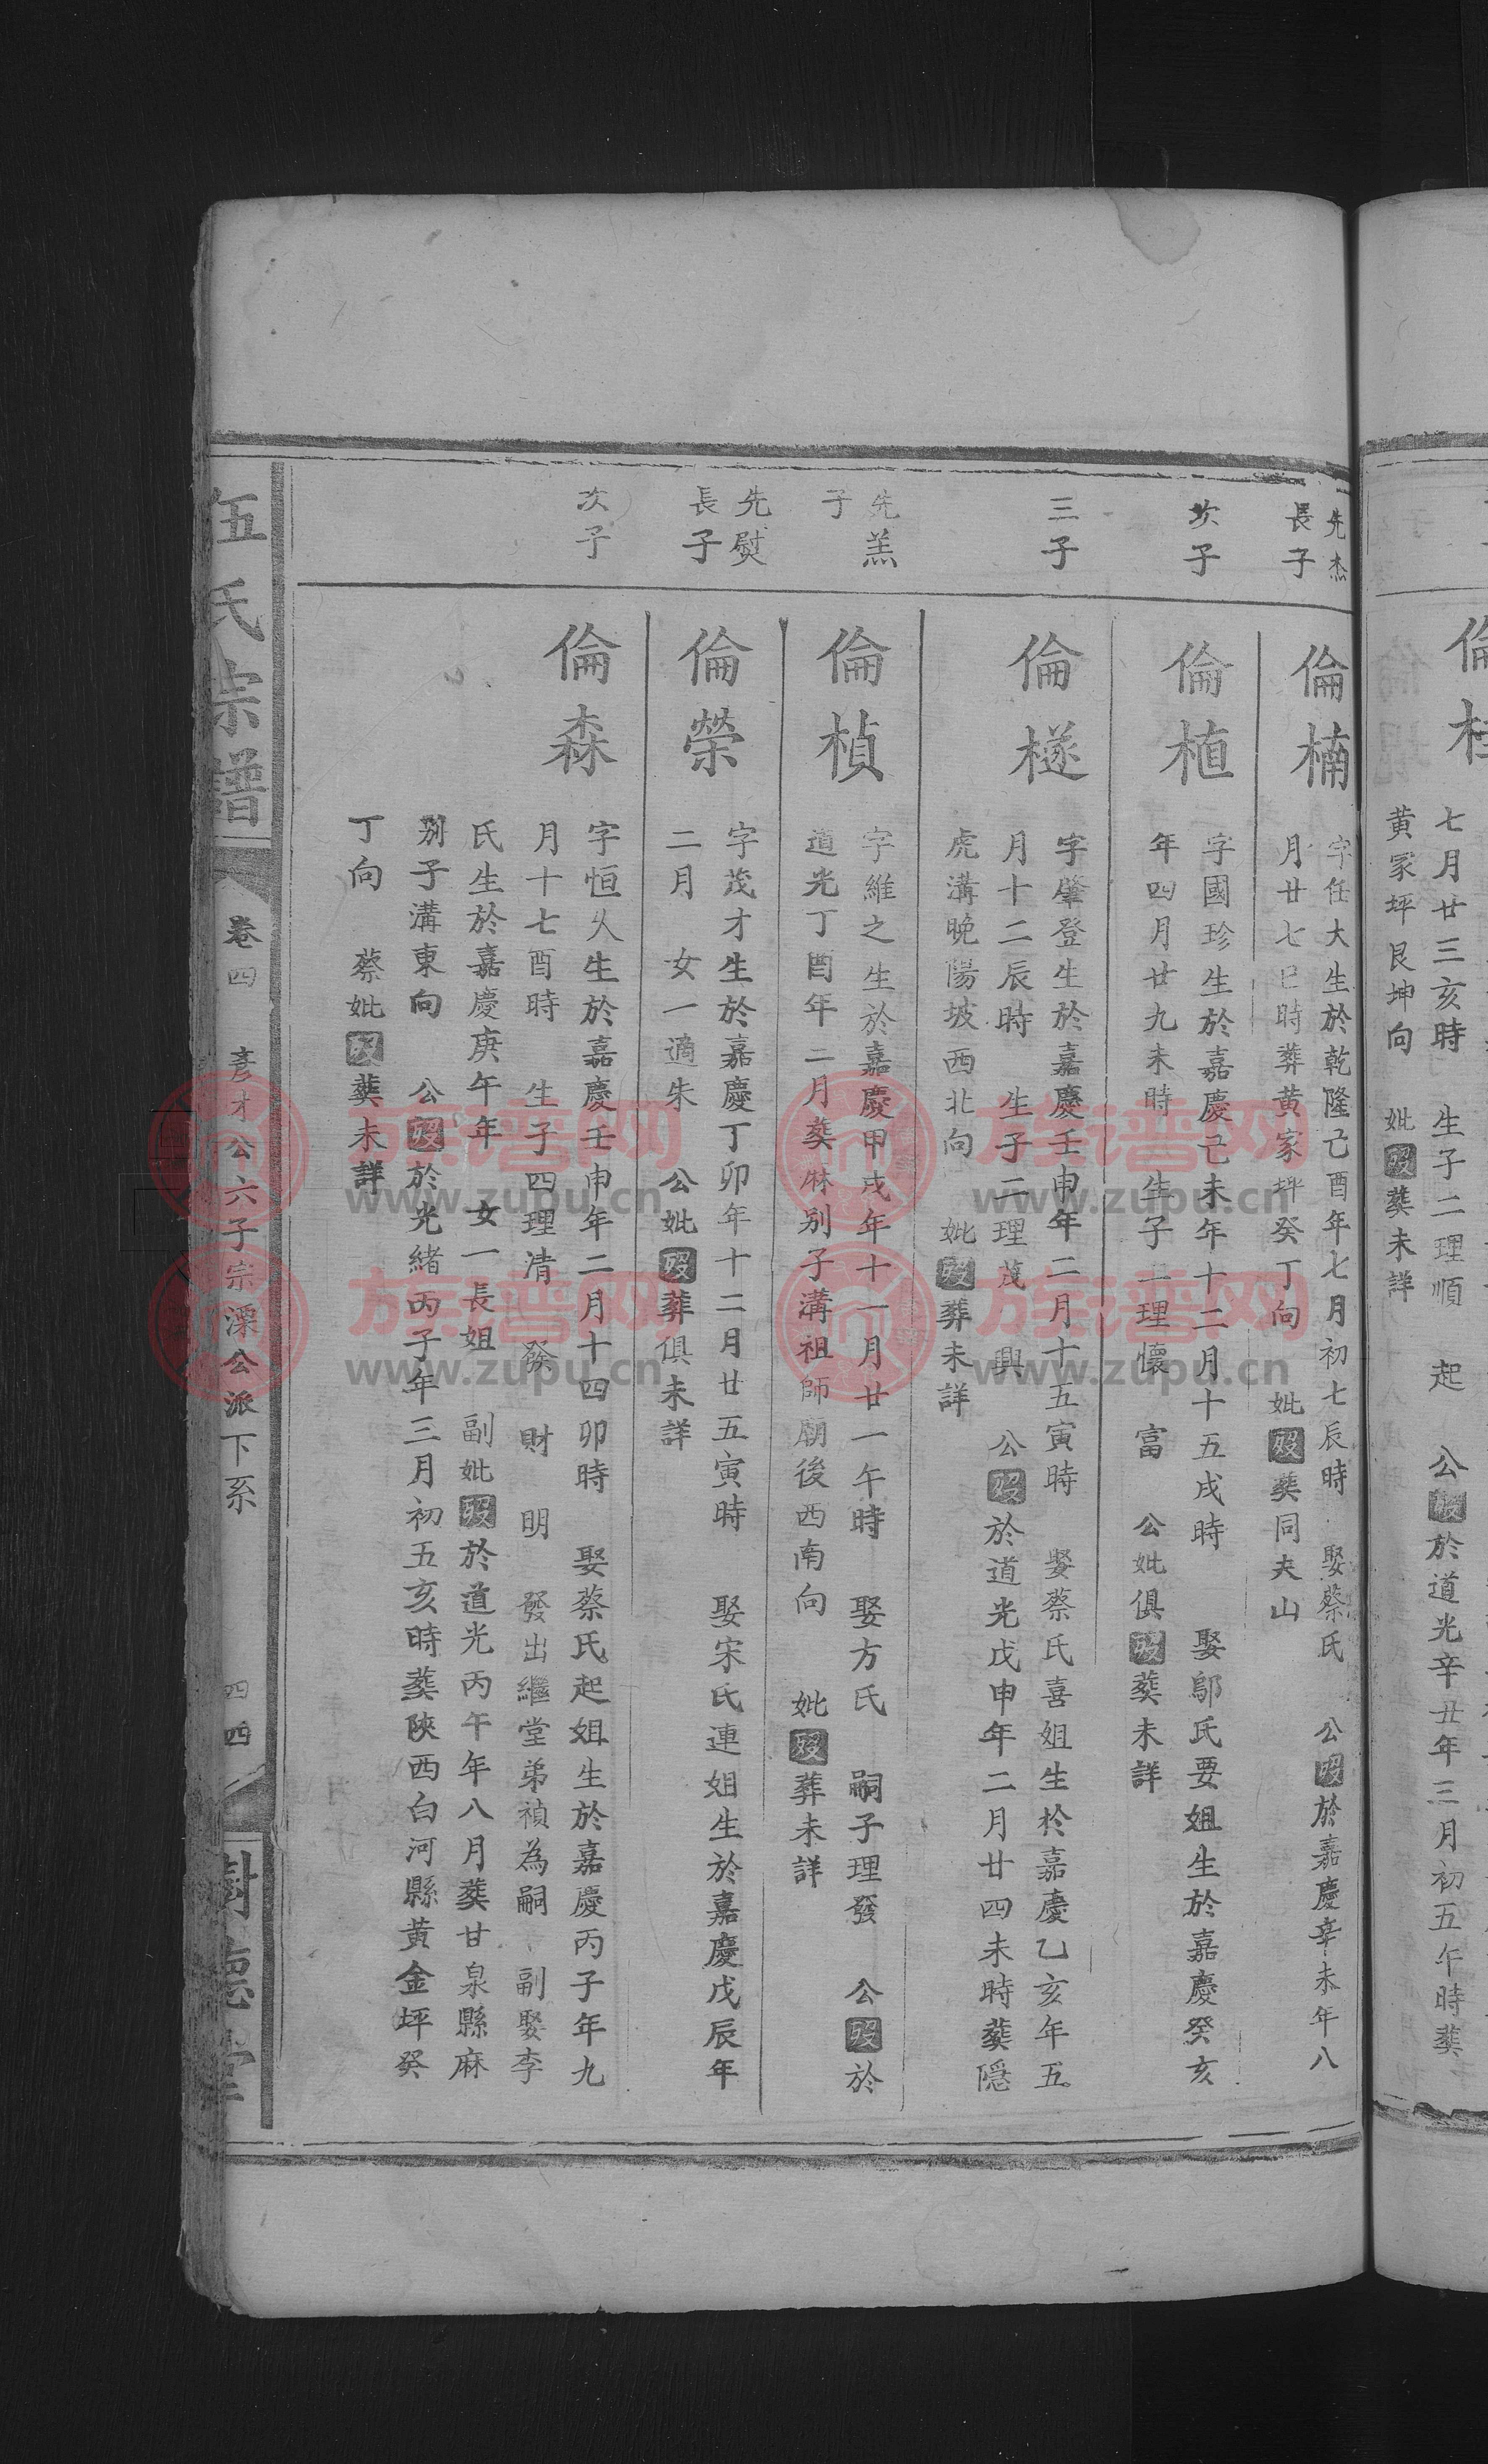 七月廿三亥時 生子二理順 起 公歿於道光辛丑年三月初五午時葬
黃家坪艮坤向 妣歿葬未詳
先杰
長子
倫楠
字任大生於乾隆己酉年七月初七辰時 娶蔡氏 公歿於嘉慶辛未年八
月廿七巳時葬黃家坪癸丁向 妣歿葬同夫山
次子
倫植
字國珍生於嘉慶己未年十二月十五戌時 娶鄔氏要姐生於嘉慶癸亥
年四月廿九未時 生子二理懷 富 公妣俱歿葬未詳
三子
倫檖
字肇登生於嘉慶壬申年二月十五寅時 娶蔡氏喜姐生於嘉慶乙亥年五
月十二辰時 生子二理茂 興 公歿於道光戊申年二月廿四未時葬隱
虎溝晚陽坡西北向 妣歿葬未詳
先羔
子
倫楨
字維之生於嘉慶甲戌年十一月廿一午時 娶方氏 嗣子理發 公歿於
道光丁酉年二月葬麻別子溝祖師廟後西南向 妣歿葬未詳
先熨
長子
倫榮
字茂才生於嘉慶丁卯年十二月廿五寅時 娶宋氏連姐生於嘉慶戊辰年
二月 女一適朱 公妣歿葬俱未詳
次子
倫森
字恒久生於嘉慶壬申年二月十四卯時 娶蔡氏起姐生於嘉慶丙子年九
月十七酉時 生子四理清 發 財 明 發出繼堂弟禎為嗣 副娶李
氏生於嘉慶庚午年 女一長姐 副妣歿於道光丙午年八月葬甘泉縣麻
別子溝東向 公歿於光緒丙子年三月初五亥時葬陝西白河縣黃金坪癸
丁向 蔡妣歿葬未詳
伍氏宗譜 卷四 彥才公六子宗深公派下系 四四 樹德堂
族谱网
www.zupu.cn
族谱网
www.zupu.cn
族谱网
www.zupu.cn
族谱网
www.zupu.cn